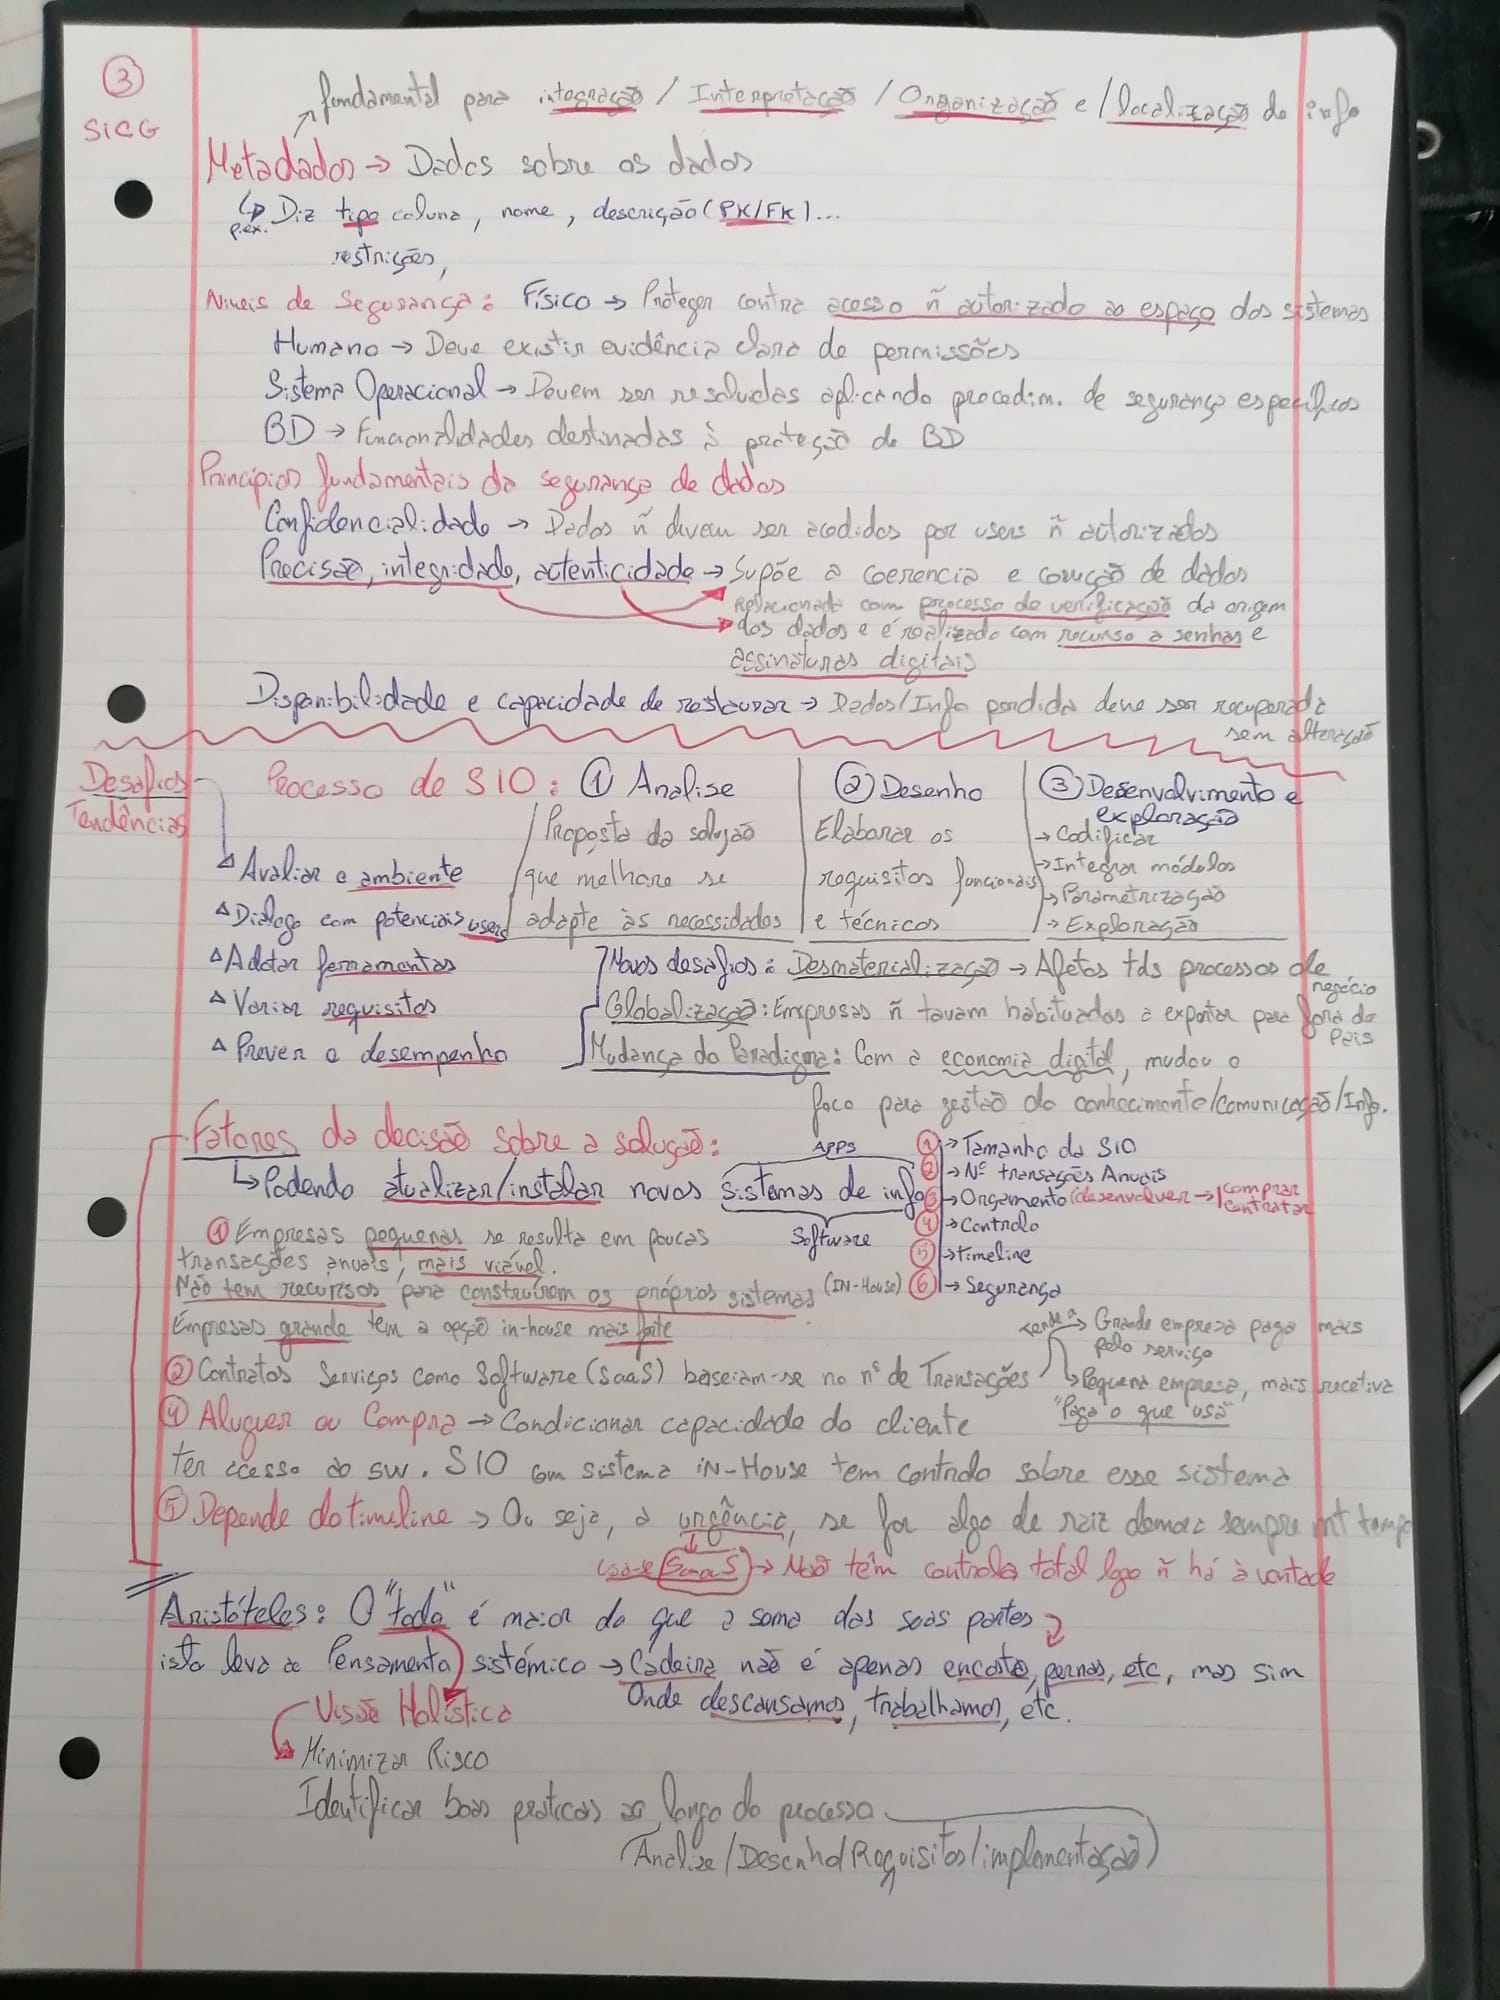 3
SICG
fundamental para integração / Interpretação / Organização e / localização de info
Metadados → Dados sobre os dados
p.ex. Diz tipo coluna, nome, descrição (PK/FK)...
restrições,
Níveis de Segurança: Físico → Proteger contra acesso ñ autorizado ao espaço dos sistemas
Humano → Deve existir evidência clara de permissões
Sistema Operacional → Devem ser resolvidas aplicando procedim. de segurança específicos
BD → Funcionalidades destinadas à proteção de BD
Princípios fundamentais da segurança de dados
Confidencialidade → Dados ñ divem ser acedidos por users ñ autorizados
Precisão, integridade, autenticidade → Supõe a coerencia e de dados
Relacionada com processo de verificação da origem
dos dados e é realizado com recurso a senhas e
assinaturas digitais
Disponibilidade e capacidade de restaurar → Dados/Info perdida deve ser recuperada
sem alteração
Desafios
Tendências
Processo de SIO: ① Analise
② Desenho
③ Desenvolvimento e
exploração
Proposta da solução
que melhore se
adapte às necessidades
Elaborar os
requisitos funcionais
e técnicos
→ Codificar
→ Integrar módulos
→ Parametrização
→ Exploração
△ Avaliar o ambiente
△ Dialogo com potenciais users
△ Adotar ferramentas
△ Variar requisitos
△ Prever o desempenho
Novos desafios: Desmaterialização → Afetos tds processos de
negócio
Globalização: Empresas ñ tavam habituadas a exportar para fora do
País
Mudança do Paradigma: Com a economia digital, mudou o
foco para gestão do conhecimento/comunicação/Info.
Fatores da decisão sobre a solução:
↳ Podendo atualizar/instalar novos sistemas de info
APPS
Software
① → Tamanho da SIO
② → Nº transações Anuais
③ → Orçamento (desenvolver → comprar
contratar
④ → Controlo
⑤ → timeline
⑥ → Segurança
① Empresas pequenas se resulta em poucas
transações anuais, mais viável.
Não tem recursos para construírem os próprios sistemas (IN-House)
Empresas grande tem a opção in-house mais forte
② Contratos Serviços como Software (SaaS) baseiam-se no nº de Transações
Tende a → Grande empresa paga mais
pelo serviço
↳ Pequena empresa, mais recetiva
"Paga o que usa"
④ Aluguer ou Compra → Condicionar capacidade do cliente
ter acesso ao sw. SIO com sistema iN-House tem controlo sobre esse sistema
⑤ Depende da timeline → Ou seja, a urgência, se for algo de raiz demora sempre mt tempo
usa-se → Não têm controla total logo ñ há à vontade
Aristóteles: O "todo" é maior do que a soma das suas partes
isto leva ao Pensamento sistémico → Cadeira não é apenas encosto, pernas, etc, mas sim
Onde descansamos, trabalhamos, etc.
Visão Holística
Minimizar Risco
Identificar boas praticas ao longo do processo
(Analize/Desenho/Requisitos/implementação)